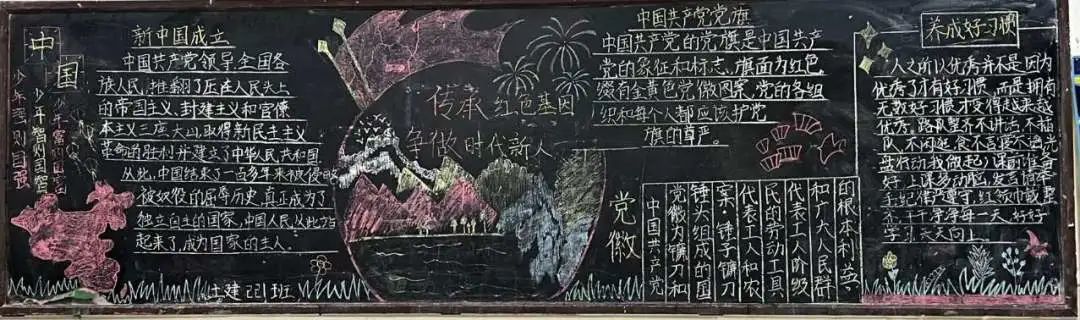 中国
少年强则国强
少年智则国智
少年富则国富
新中国成立
中国共产党领导全国各
族人民,推翻了压在人民头上
的帝国主义、封建主义和官僚
本主义三座大山,取得新民主主义
革命的胜利并建立了中华人民共和国
从此,中国结束了一百多年来被侵略
被奴役的屈辱历史,真正成为了
独立自主的国家,中国人民从此站
起来了,成为国家的主人。
土建221班
传承红色基因
争做时代新人
中国共产党党旗
中国共产党的党旗是中国共产
党的象征和标志。旗面为红色
缀有金黄色党徽图案,党的各组
织和每个人都应该护党
旗的尊严。
党徽
中国共产党
党徽为镰刀和
锤头组成的图
案·锤子镰刀
代表工人和农
民的劳动工具
代表工人阶级
和广大人民群
的根本利益
养成好习惯
人之所以优秀并不是因为
优秀了才有好习惯,而是拥有
无数好习惯才变得越来越
优秀。路队整齐不讲话不插
队不闲逛食不言寝不语光
盘行动我做起课前准备
好上课多动脑,发言
手纪律严遵守,红
干干净净每一天好好
学习天天向上。